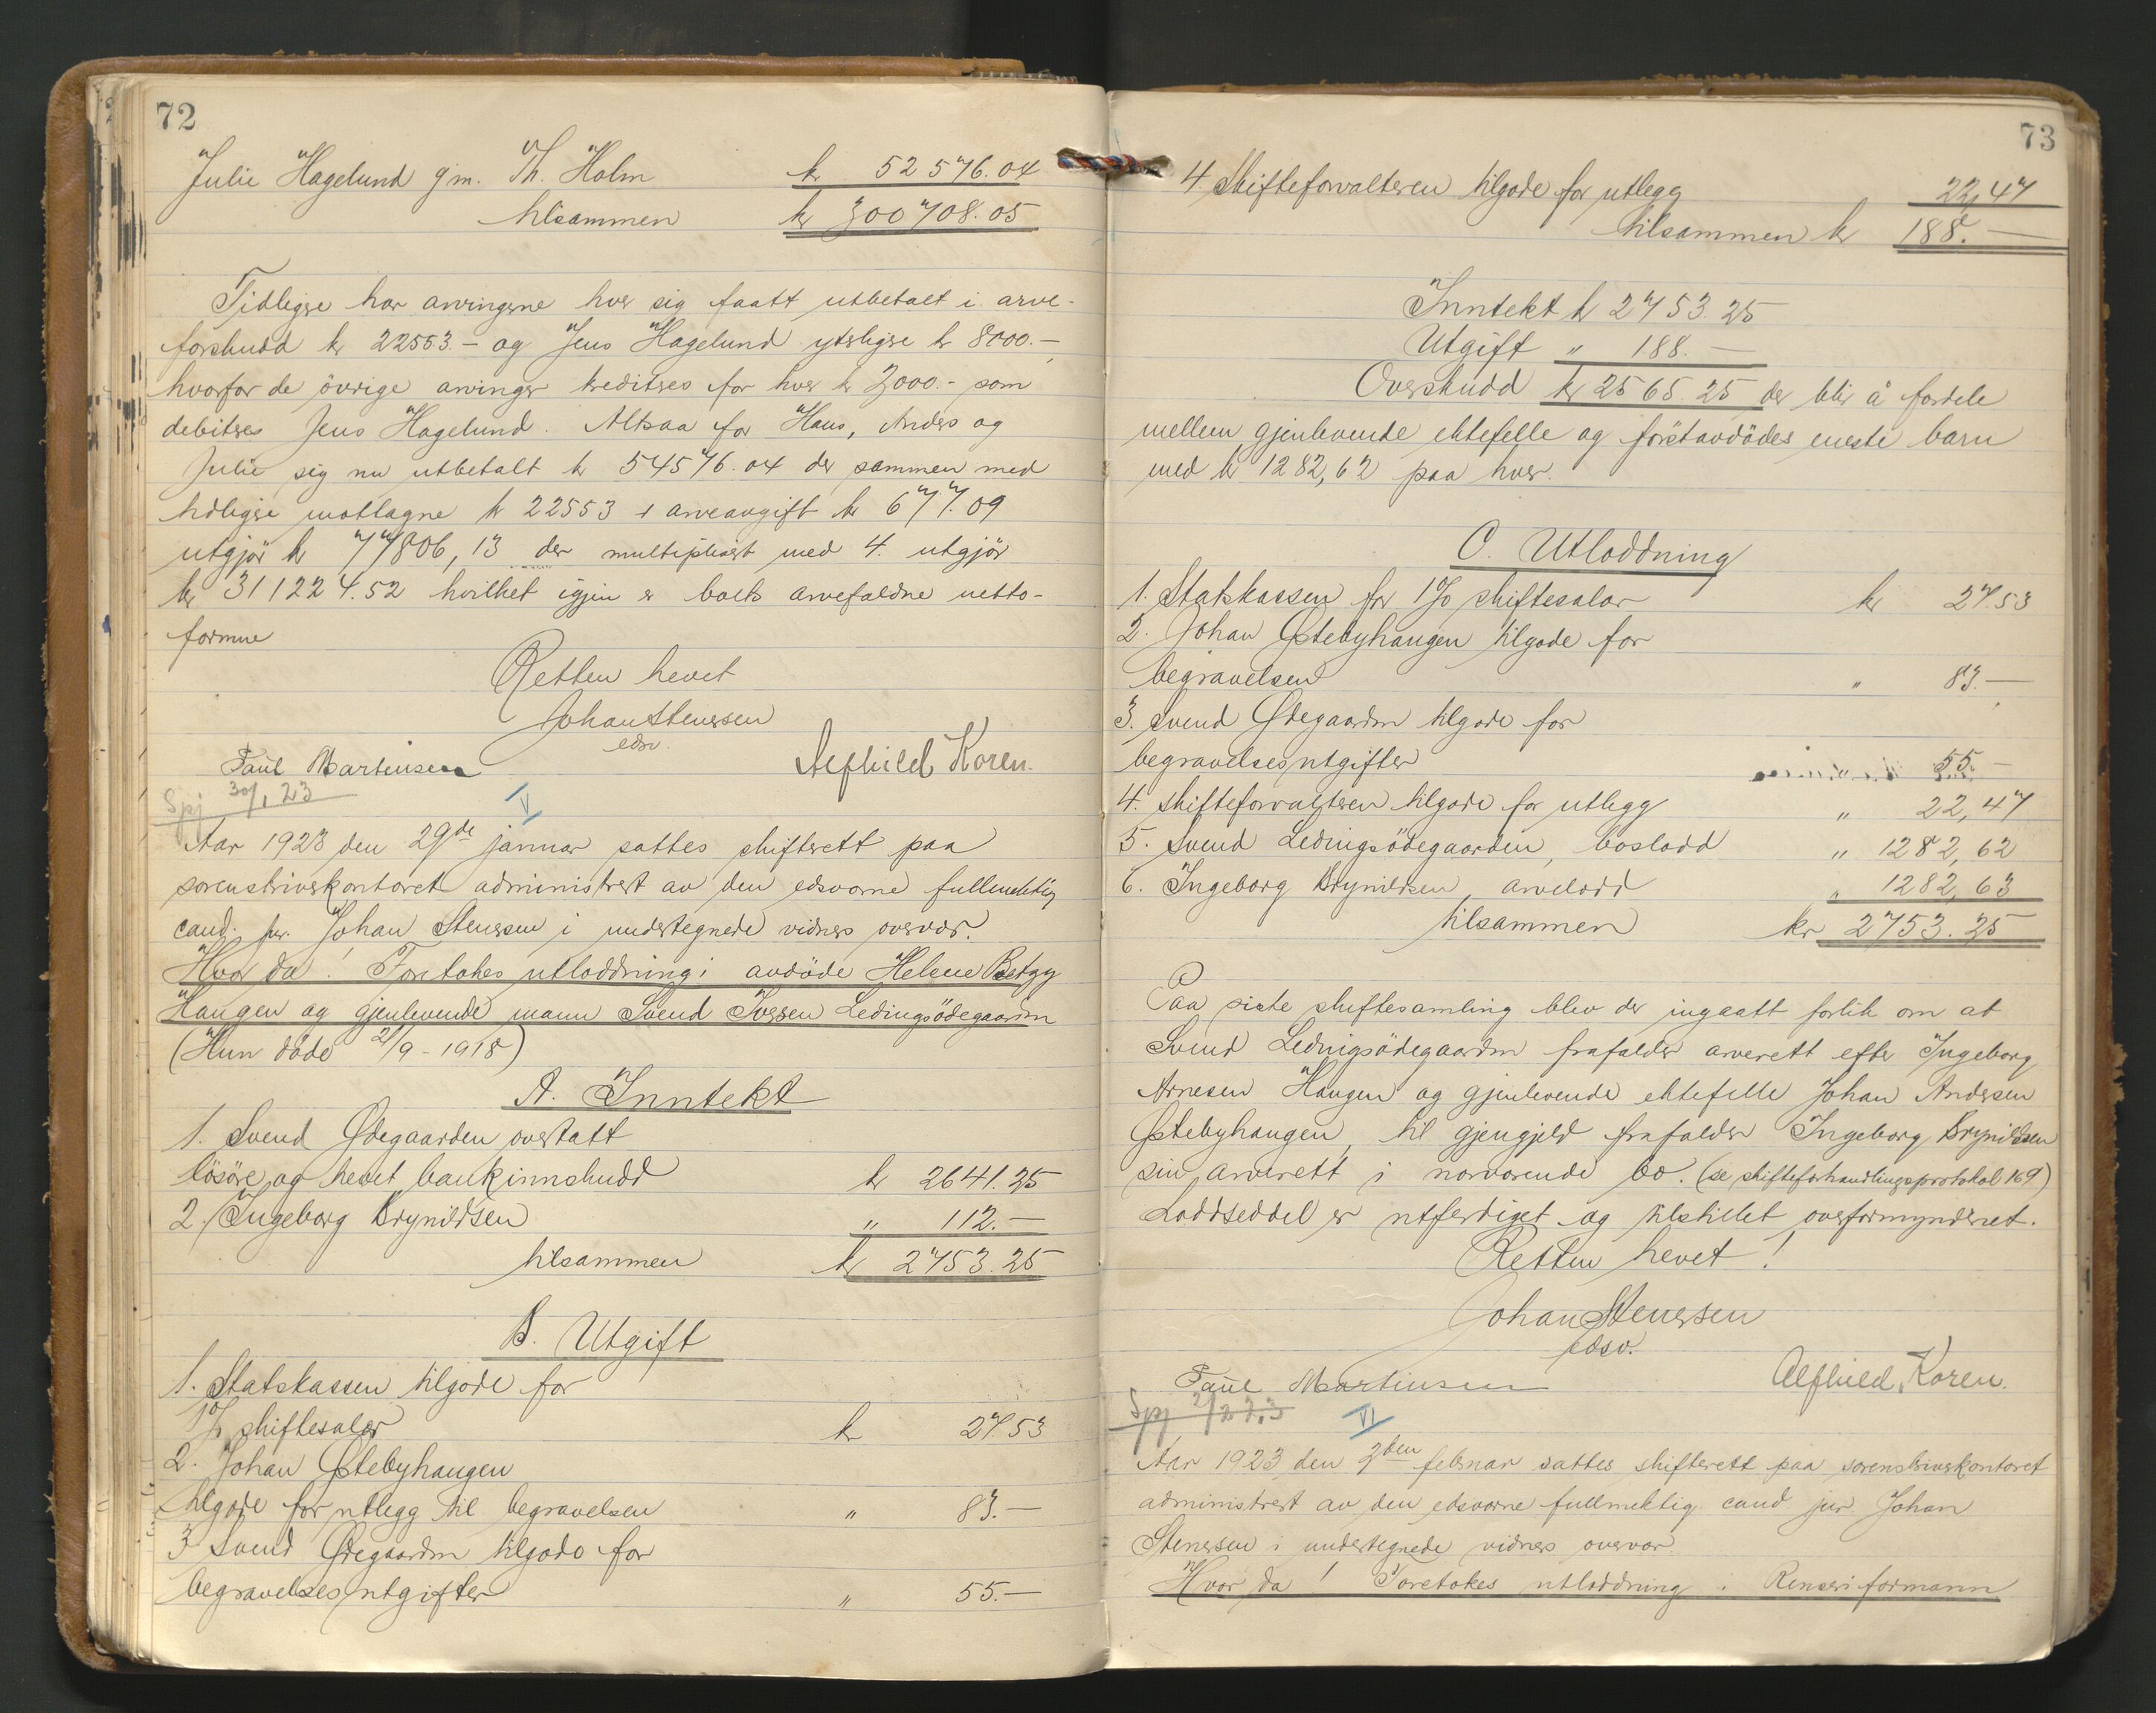 72
Julie Hagelund gm. Th. Holm kr 52576.04
tilsammen kr 300708.05
Tidligere har arvingene hver sig faatt utbetalt i arve-
forskudd kr 22553.- og Jens Hagelund ytterligere kr 8000.-,
hvorfor de övrige arvinger krediteres for hver kr 2000.- som
debiteres Jens Hagelund. Altsaa for Hans, Anders og
Julie sig nu utbetalt kr 54576.04 der sammen med
tidligere mottagne kr 22553 + arveavgift kr 677.09
utgjör kr 77806,13 der multiplisert med 4. utgjör
kr 311224.52 hvilket igjen er boets arvefaldne netto-
formue
Retten hevet
Johan Stenersen
edsv.
Paul Martinsen Alfhild Koren.
Spj 30/1 23
V
Aar 1923 den 29de januar sattes skifterett paa
sorenskriverkontoret administrert av den edsvorne fullmektig
cand. jur. Johan Stenersen i undertegnede vidners overvær.
Hvor da! Foretokes utloddning i avdöde Helene Betzy
Haugen og gjenlevende mann Svend Iversen Ledingsödegaarden
(Hun döde 21/9 - 1918)
A. Inntekt
1. Svend Ødegaarden overtatt
lösöre og hevet bankinnskudd kr 2641.25
2. Ingeborg Brynildsen " 112.-
tilsammen kr 2753.25
B. Utgift
1. Statskassen tilgode for
1% skiftesalær kr 27.53
2. Johan Østebyhaugen
tilgode for utlegg til begravelsen " 83.-
3 Svend Ødegaarden tilgode for
begravelsesutgifter " 55.-
73
4. Skifteforvalteren tilgode for utlegg 22,47
tilsammen kr 188.-
Inntekt kr 2753.25
Utgift " 188.-
Overskudd kr 2565.25 der blir å fordele
mellem gjenlevende ektefelle og förstavdödes eneste barn
med kr 1282,62 paa hver.
C. Utloddning
1. Statskassen for 1% skiftesalær kr 27.53
2. Johan Østebyhaugen tilgode for
begravelsen " 83.-
3. Svend Ødegaarden tilgode for
begravelsesutgifter 55.-
4. Skifteforvalteren tilgode for utlegg " 22,47
5. Svend Ledingsödegaarden, boslodd " 1282,62
6. Ingeborg Brynildsen, arvelodd " 1282,63
tilsammen kr 2753.25
Paa siste skiftesamling blev der inngaatt forlik om at
Svend Ledingsödegaarden frafalder arverett efter Ingeborg
Arnesen Haugen og gjenlevende ektefelle Johan Andersen
Østebyhaugen, til gjengjeld frafalder Ingeborg Brynildsen
sin arverett i nærværende bo. (se skifteforhandlingsprotokol 169)
Loddseddel er utferdiget og tilstillet overformynderiet.
Retten hevet!
Johan Stenersen
edsv.
Paul Martinsen Alfhild Koren.
Spj 2/2 23
VI
Aar 1923 den 2den februar sattes skifterett paa sorenskriverkontoret
administrert av den edsvorne fullmektig cand jur Johan
Stenersen i undertegnede vidners overvær.
Hvor da! Foretokes utloddning i Renseriformann